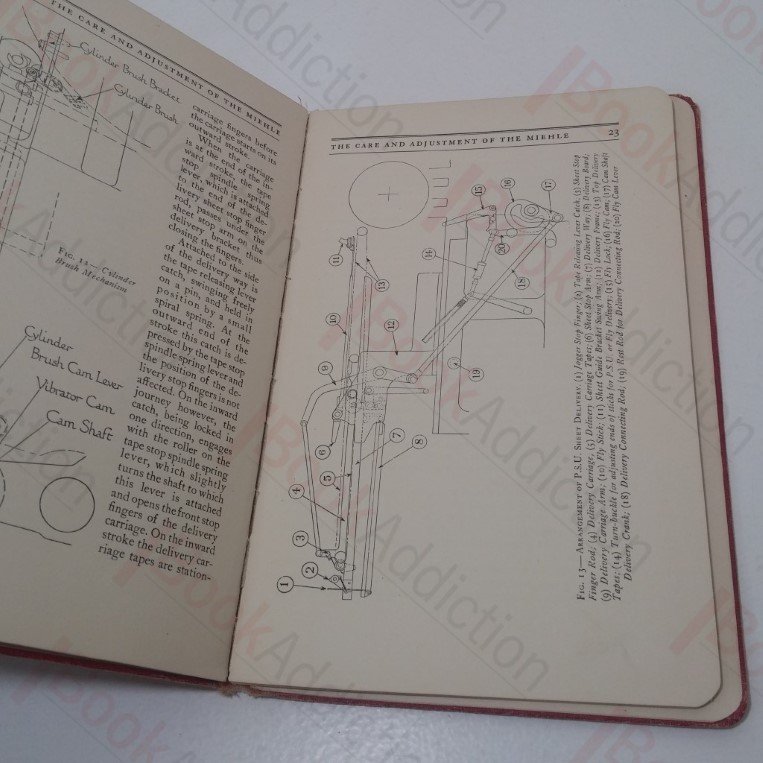 THE CARE AND ADJUSTMENT OF THE MIEHLE
Cylinder Brush Bracket
Cylinder Brush
FIG. 12—Cylinder
Brush Mechanism
Cylinder
Brush Cam Lever
Vibrator Cam
Cam Shaft
carriage fingers before
the carriage starts on its
outward stroke.
When the carriage
is at the end of the in-
ward stroke, the tape
stop spindle spring
lever, which is attached
to the end of the de-
livery sheet stop finger
rod, passes under the
sheet stop arm on the
delivery bracket thus
closing the fingers.
Attached to the side
of the delivery way is
the tape releasing lever
catch, swinging freely
on a pin, and held in
position by a small
spiral spring. At the
outward end of the
stroke this catch is de-
pressed by the tape stop
spindle spring lever and
the position of the de-
livery stop fingers is not
affected. On the inward
journey however, the
catch, being locked in
one direction, engages
with the roller on the
tape stop spindle spring
lever, which slightly
turns the shaft to which
this lever is attached
and opens the front stop
fingers of the delivery
carriage. On the inward
stroke the delivery car-
riage tapes are station-
THE CARE AND ADJUSTMENT OF THE MIEHLE 23
1
2
3
4
5
6
7
8
9
10
11
12
13
14
15
16
17
18
19
20
FIG. 13—ARRANGEMENT OF P.S.U. SHEET DELIVERY. (1) Jogger Stop Finger; (2) Tape Releasing Lever Catch; (3) Sheet Stop
Finger Rod; (4) Delivery Carriage; (5) Delivery Carriage Tapes; (6) Sheet Stop Arm; (7) Delivery Way; (8) Delivery Board;
(9) Delivery Carriage Arm; (10) Fly Stick; (11) Sheet Guide Bracket Swing Arm; (12) Delivery Frame; (13) Top Delivery
Tapes; (14) Turn-buckle for adjusting ends of sticks for P.S.U. or Fly Delivery; (15) Fly Lock; (16) Fly Cam; (17) Cam Shaft
Delivery Crank; (18) Delivery Connecting Rod; (19) Rest Rod for Delivery Connecting Rod; (20) Fly Cam Lever
Book Addiction